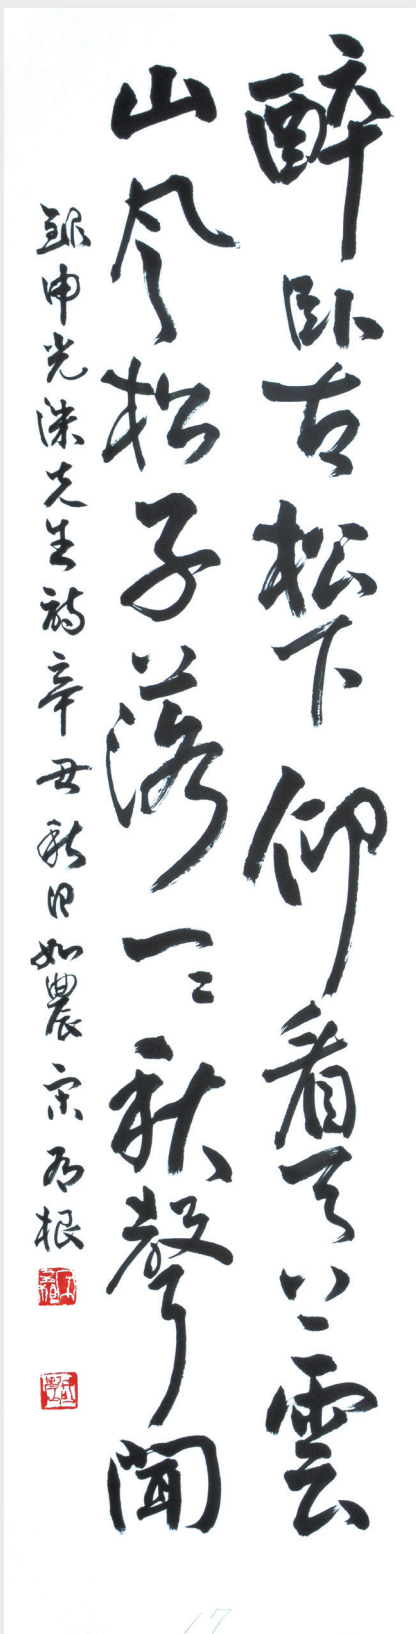 醉臥古松下仰看天上雲
山風松子落一一秋聲聞
錄申光洙先生詩辛丑秋日如農宋根
17